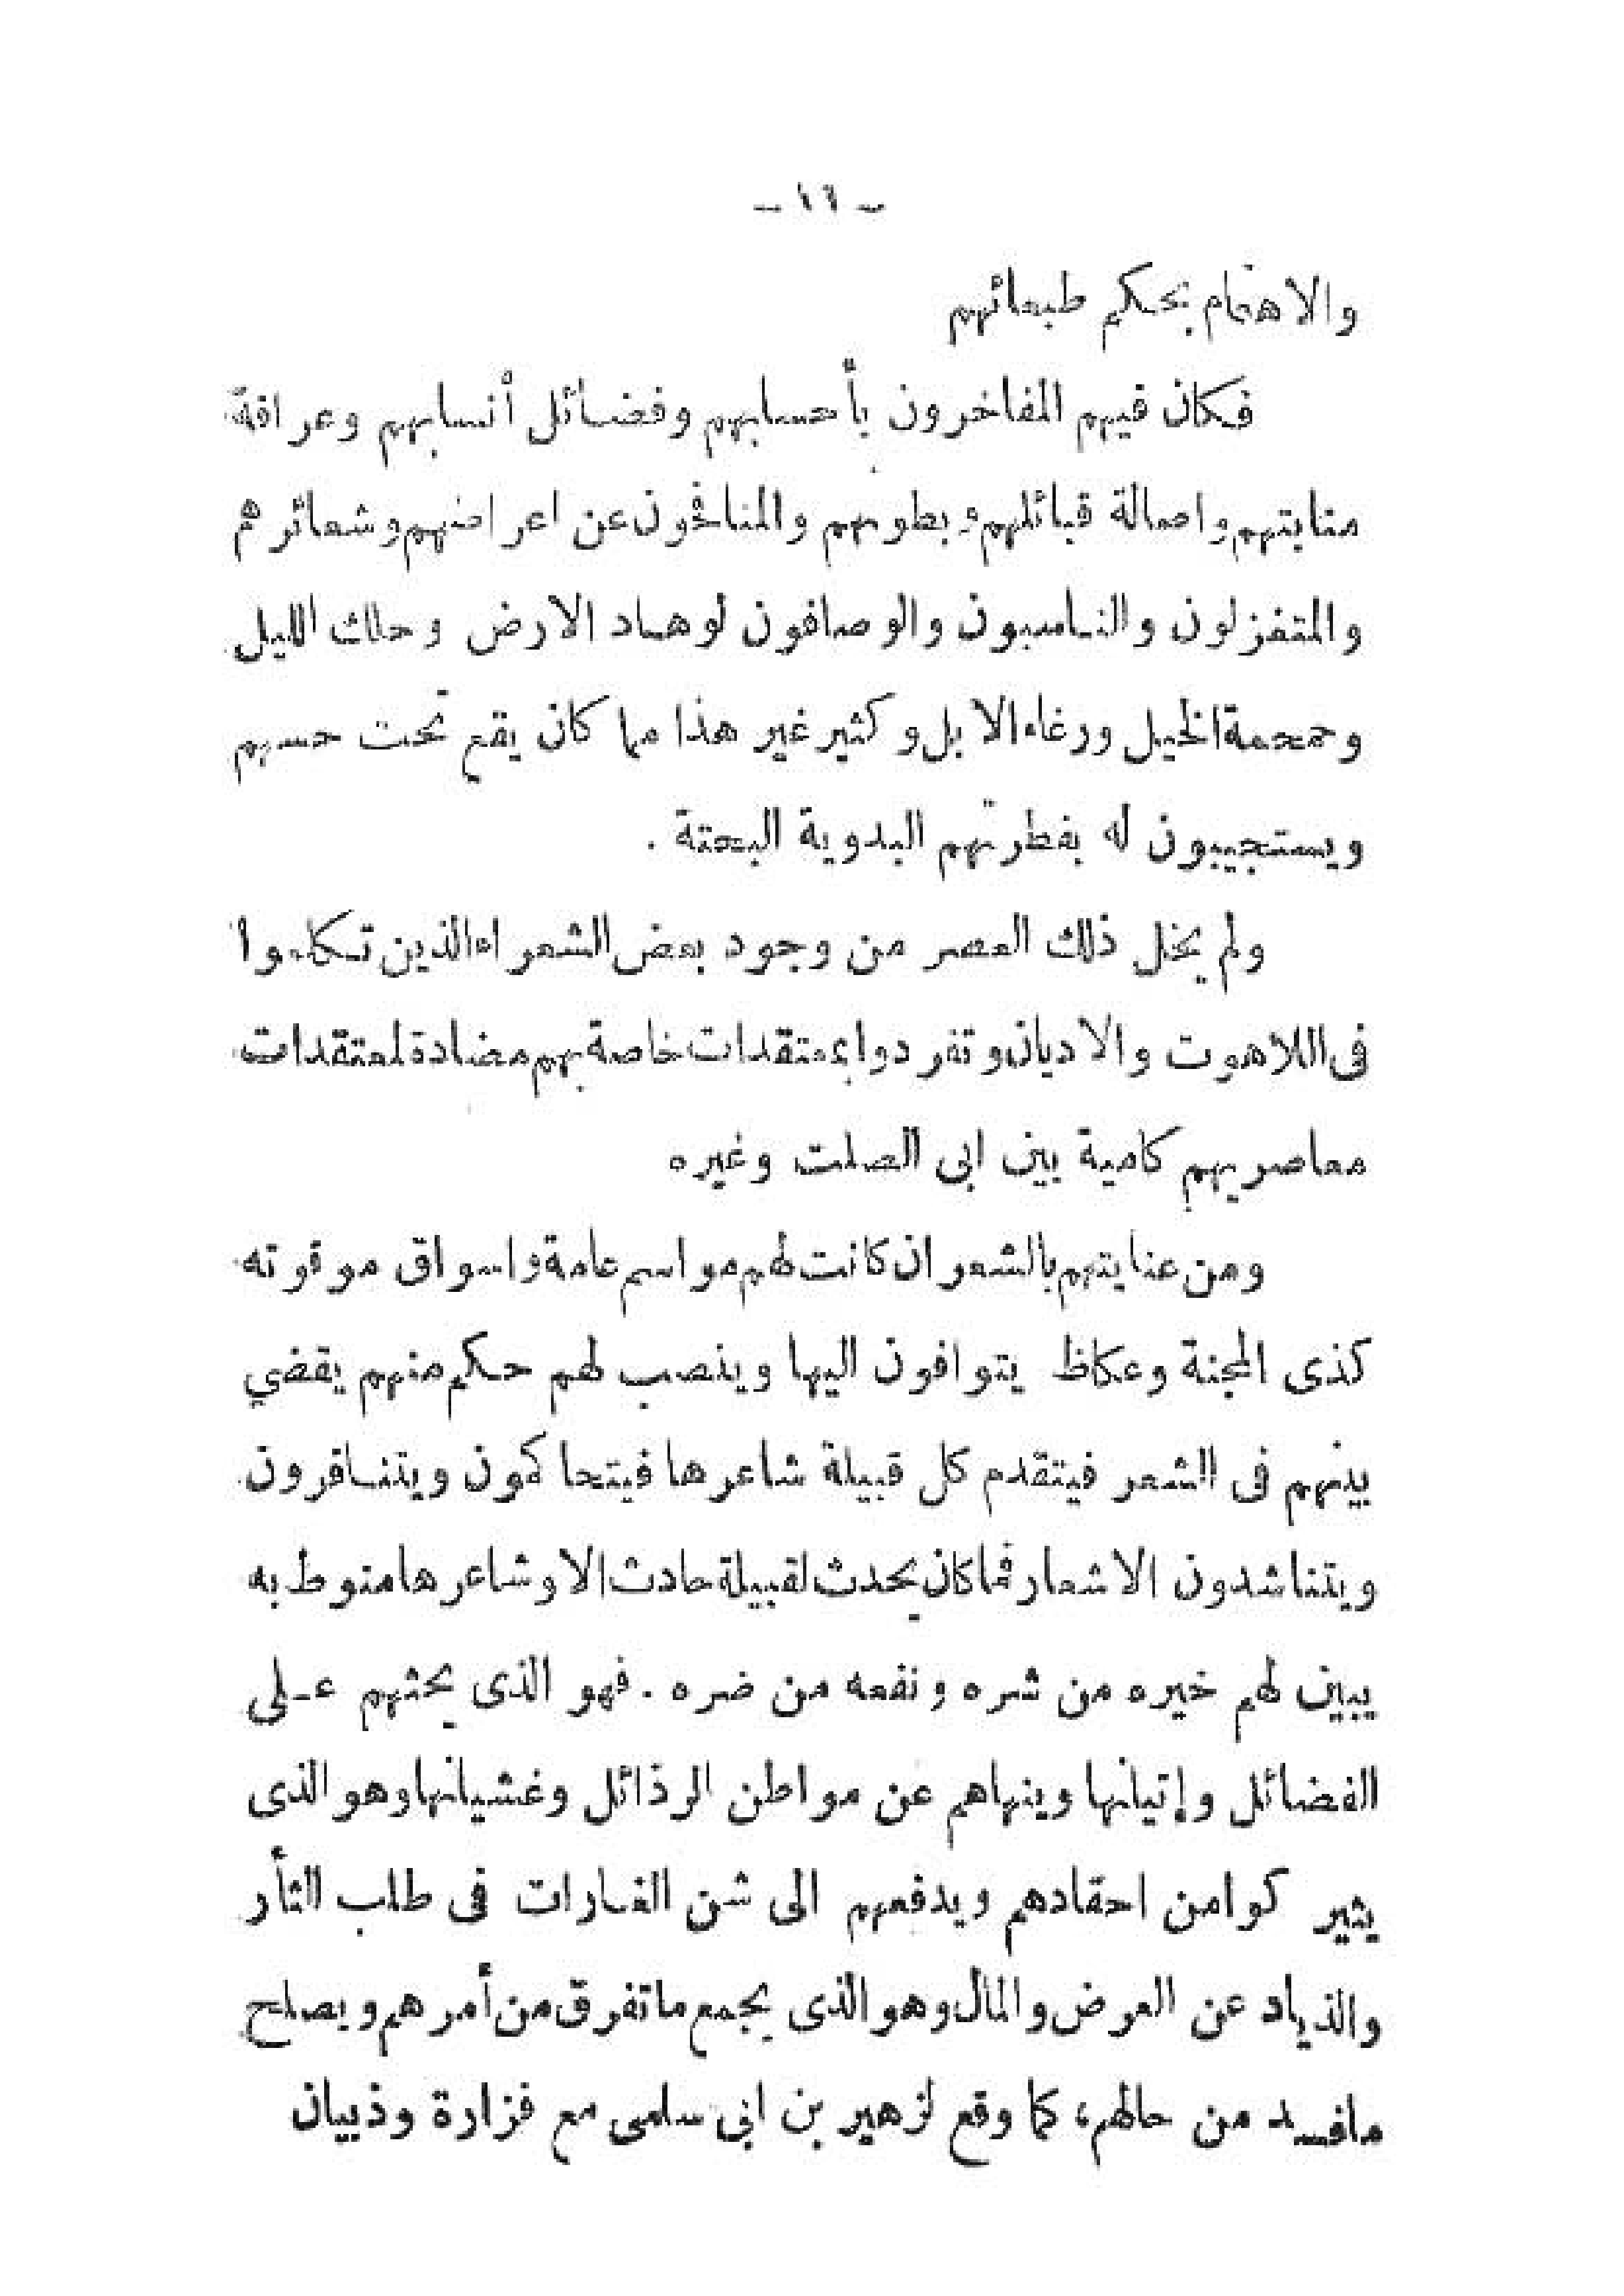 - ١٦ -
والاهتمام بحكم طبعائهم
فكان فيهم المفاخرون بأحسابهم وفضائل أنسابهم وعراقة
منابتهم واصالة قبائلهم وبطونهم والمنافحون عن اعراضهم وشعائرهم
والمتغزلون والناسبون والوصافون لوهاد الارض وحلك الليل
وحمحمة الخيل ورغاء الابل وكثير غير هذا مما كان يقع تحت حسهم
ويستجيبون له بفطرتهم البدوية البحتة .
ولم يخل ذلك العصر من وجود بعض الشعراء الذين تكلموا
فى اللاهوت والاديان وتفردوا بمعتقدات خاصة بهم مضادة لمعتقدات
معاصريهم كامية بين ابى الصلت وغيره
ومن عنايتهم بالشعر ان كانت لهم مواسم عامة واسواق موقوته
كذى المجنة وعكاظ يتوافون اليها وينصب لهم حكم منهم يقضي
بينهم فى الشعر فيتقدم كل قبيلة شاعرها فيتحاكمون ويتنافرون
ويتناشدون الاشعار فما كان يحدث لقبيلة حادث الا وشاعرها منوط به
يبين لهم خيره من شره ونفعه من ضره . فهو الذى يحثهم على
الفضائل وإتيانها وينهاهم عن مواطن الرذائل وغشيانها وهو الذى
يثير كوامن احقادهم ويدفعهم الى شن الغارات فى طلب الثأر
والذياد عن العرض والمال وهو الذى يجمع ما تفرق من أمرهم ويصلح
مافسد من حالهم، كما وقع لزهير بن ابى سلمى مع فزارة وذبيان